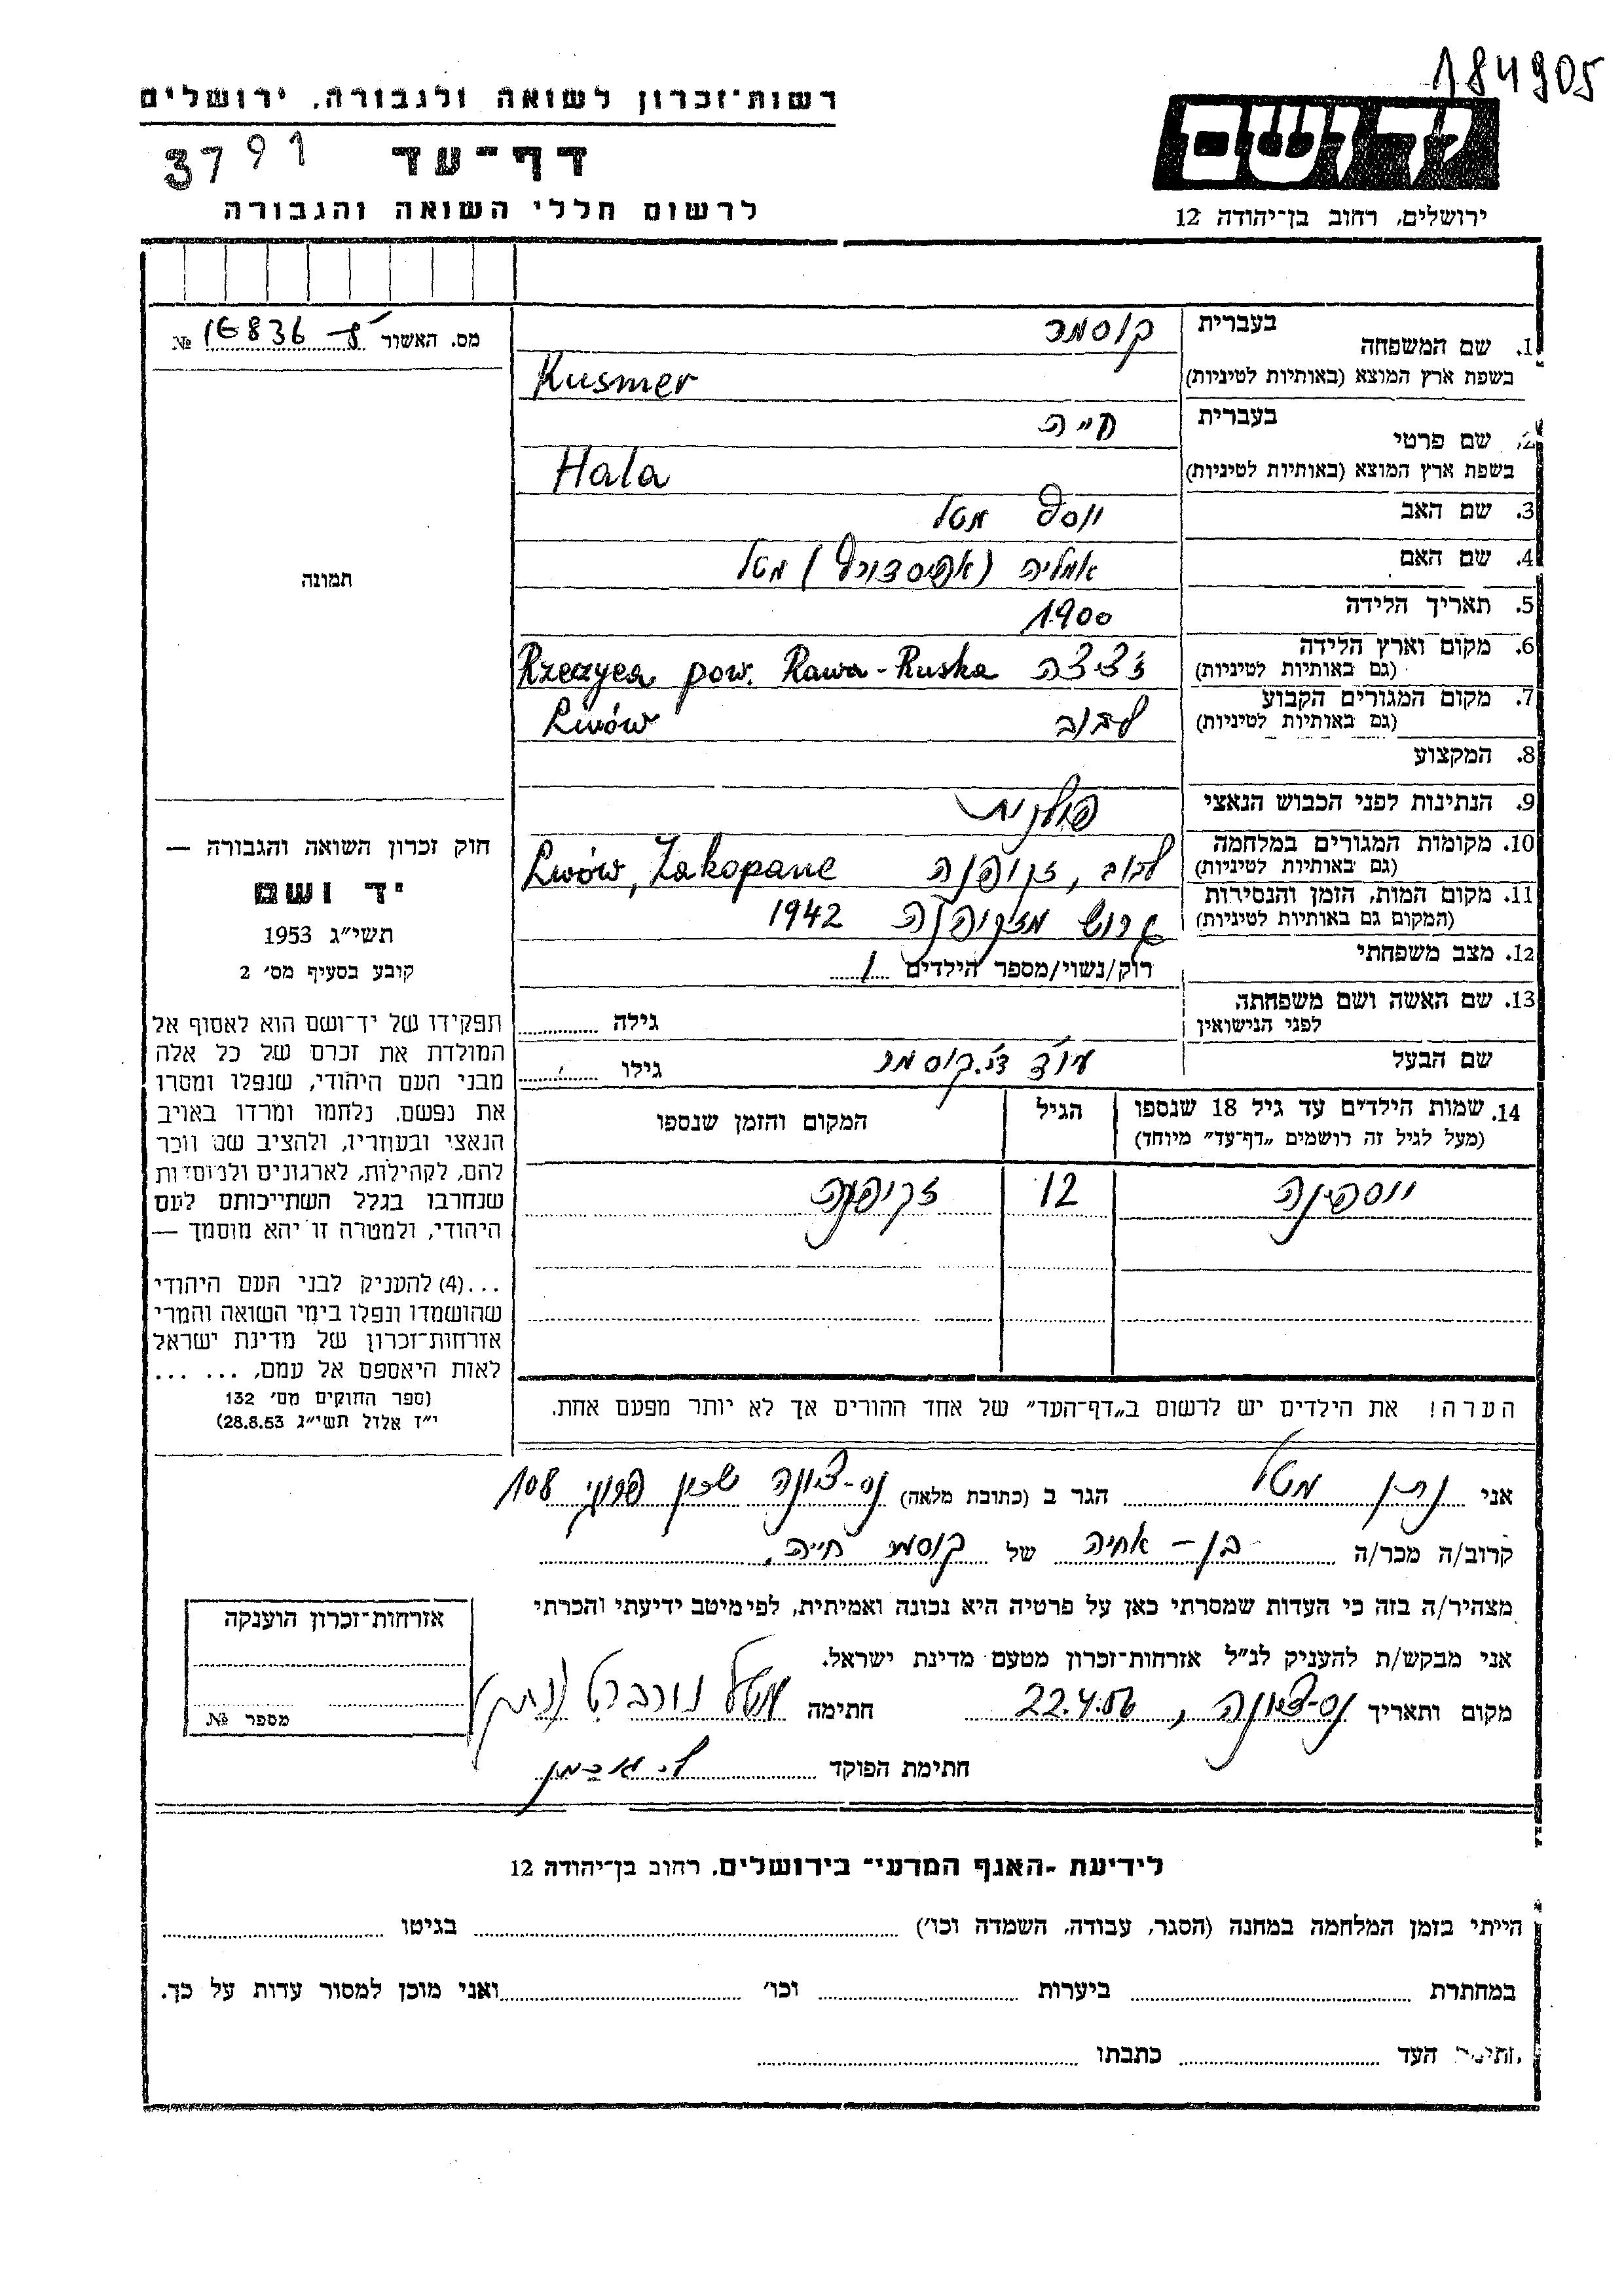 184905
רשות־זכרון לשואה ולגבורה, ירושלים
יד ושם
דף־עד
3791
לרשום חללי השואה והגבורה
ירושלים, רחוב בן־יהודה 12
בעברית
קוסמר
1. שם המשפחה
בשפת ארץ המוצא (באותיות לטיניות)
Kusmer
בעברית
חייה
2. שם פרטי
בשפת ארץ המוצא (באותיות לטיניות)
Hala
3. שם האב
יוסף מטל
4. שם האם
אמליה מטל
5. תאריך הלידה
1900
6. מקום וארץ הלידה
(גם באותיות לטיניות)
Rzeczyca pow. Rawa-Ruska
7. מקום המגורים הקבוע
(גם באותיות לטיניות)
לבוב Lwów
8. המקצוע
9. הנתינות לפני הכבוש הנאצי
פולנית
10. מקומות המגורים במלחמה
(גם באותיות לטיניות)
לבוב, זקופנה Lwów, Zakopane
11. מקום המות, הזמן והנסירות
(המקום גם באותיות לטיניות)
גרוש מזקופנה 1942
12. מצב משפחתי
רוק/נשוי/מספר הילדים 1
13. שם האשה ושם משפחתה
לפני הנישואין
גילה
שם הבעל
עו"ד ד"ר קוסמר
גילו
14. שמות הילדים עד גיל 18 שנספו
(מעל לגיל זה רושמים „דף־עד” מיוחד)
הגיל
המקום והזמן שנספו
יוספינה 12 זקופנה
הערה! את הילדים יש לרשום ב„דף־העד” של אחד ההורים אך לא יותר מפעם אחת.
מס. האשור 16836 №
תמונה
חוק זכרון השואה והגבורה —
יד ושם
תשי״ג 1953
קובע בסעיף מס׳ 2
תפקידו של יד־ושם הוא לאסוף אל
המולדת את זכרם של כל אלה
מבני העם היהודי, שנפלו ומסרו
את נפשם, נלחמו ומרדו באויב
הנאצי ובעוזריו, ולהציב שם וזכר
להם, לקהילות, לארגונים ולמוסדות
שנחרבו בגלל השתייכותם לעם
היהודי, ולמטרה זו יהא מוסמך —
...(4) להעניק לבני העם היהודי
שהושמדו ונפלו בימי השואה והמרי
אזרחות־זכרון של מדינת ישראל
לאות היאספם אל עמם, ... ...
(ספר החוקים מס׳ 132
י״ז אלול תשי״ג 28.8.53)
אני נתן מטל הגר ב (כתובת מלאה) נס-ציונה שכון 108
קרוב/ה מכר/ה בן-אחיה של קוסמר חייה
מצהיר/ה בזה כי העדות שמסרתי כאן על פרטיה היא נכונה ואמיתית, לפי מיטב ידיעתי והכרתי
אני מבקש/ת להעניק לנ״ל אזרחות־זכרון מטעם מדינת ישראל.
מקום ותאריך נס-ציונה, 22.4.56 חתימה מטל נורברט (נתן)
חתימת הפוקד
אזרחות־זכרון הוענקה
מספר №
לידיעת ־האגף המדעי־ בירושלים, רחוב בן־יהודה 12
הייתי בזמן המלחמה במחנה (הסגר, עבודה, השמדה וכו׳) בגיטו
במחתרת ביערות וכו׳ ואני מוכן למסור עדות על כך.
העד כתבתו